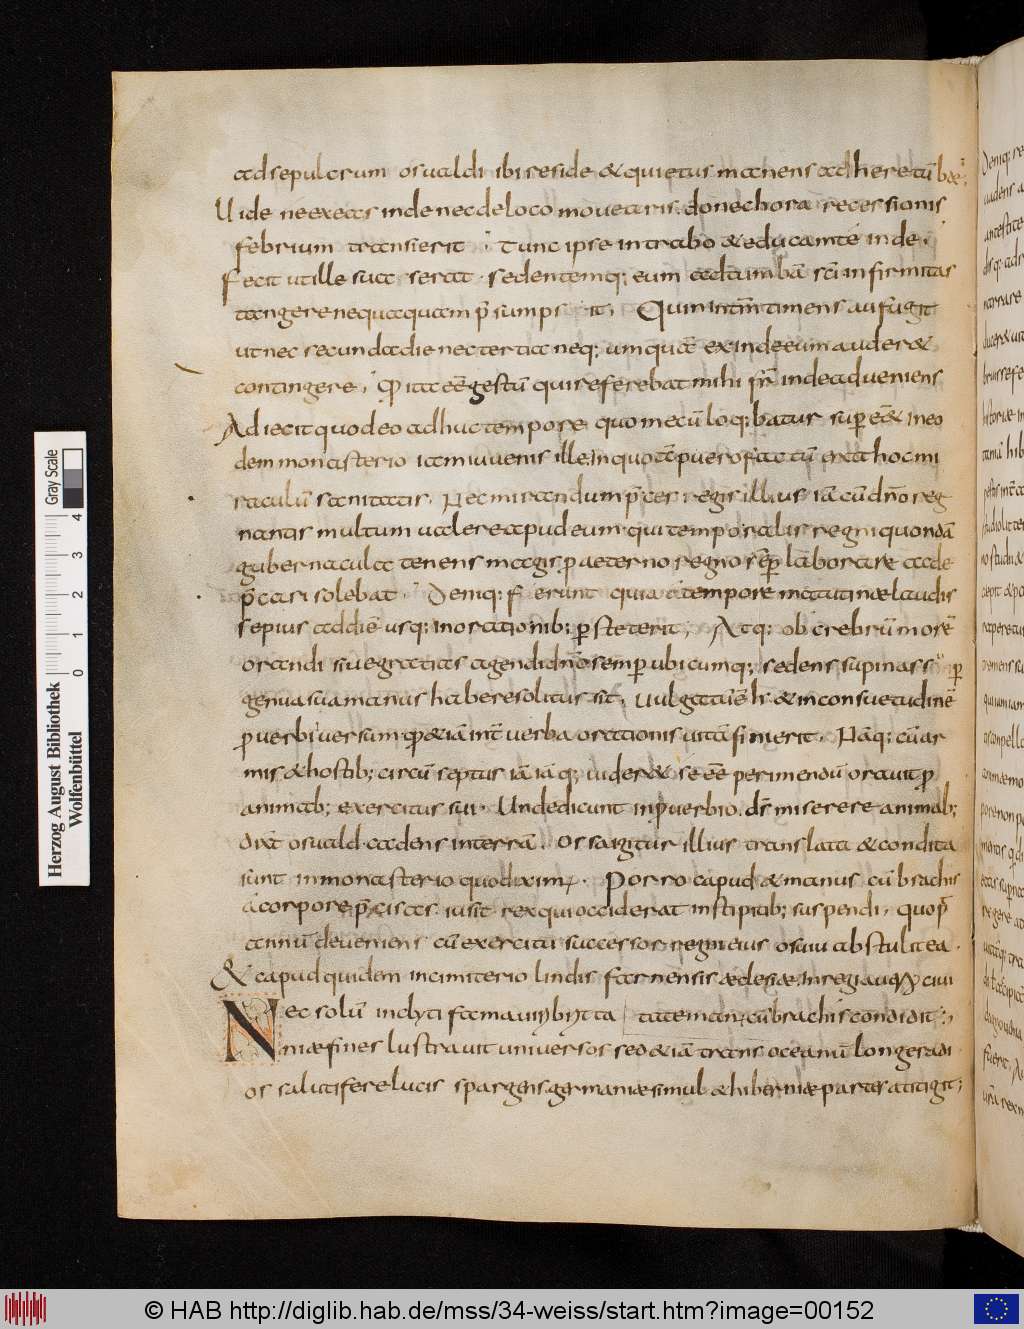 ad sepulcrum osuualdi ibi reside & quietus manens adhere tūbæ;
Uide ne exeas inde nec de loco mouearis donec hora recessionis
febrium transierit; Tunc ipse intrabo & educam te inde;
Fecit ut ille suaserat. sedentemq; eum ad tumbā sc̄i infirmitas
tangere nequaquam p̄sumpsit; Quin int̄m timens aufugit
ut nec secunda die nec tertia neq; umquā exinde eum auder&
contingere; Qđ ita eē gestū qui referebat mihi fr̄ inde adueniens
Adiecit quod eo adhuc tempore quo mecū loq;batur sup eēt in eo
dem monasterio iam iuuenis ille in quo tc̄ puero factū erat hoc mi
raculū sanitatis. Nec mirandum p̄ces regis illius iā cū dn̄o reg
nantis multum ualere apud eum qui temporalis regni quondā
gubernacula tenens magis p aeterno regno semp laborare ac de
p̄cari solebat. Deniq; ferunt quia a tempore matutinæ laudis
sepius ad diē usq; in orationib; pstiterit; Atq; ob crebrū morē
orandi siue gratias agendi dn̄o semp ubicumq; sedens supinas sup
genua sua manus habere solitus sit; Uulgatū ē h & in consuetudinē
puerbi uersum qđ &iā int̄ uerba orationis uitā finierit. Nāq; cū ar
mis & hostib; circū septus iā iāq; uider& se eē perimendū orauit p
animab; exercitus sui. Unde dicunt in puerbio. ds̄ miserere animab;
dix̄ osuuald cadens in terrā. Ossa igitur illius translata & condita
sunt in monasterio quod diximus. Porro capud & manus cū brachis
a corpore p̄cisas iussit rex qui occiderat in stipitib; suspendi, quo p̄
annū deueniens cū exercitu successor regni eius osuiu abstulit ea.
& capud quidem in cimiterio lindisfarnensis æclesiæ, in regia uero ciui
tate manus cū brachis condidit;
Nec solū inclyti fama uiri brytta
niæ fines lustrauit uniuersos sed &iā trans oceanū longe radi
os salutifere lucis spargens germaniæ simul & hiberniæ partes attigit;
Herzog August Bibliothek
Wolfenbüttel
0 1 2 3 4
Gray Scale
© HAB http://diglib.hab.de/mss/34-weiss/start.htm?image=00152